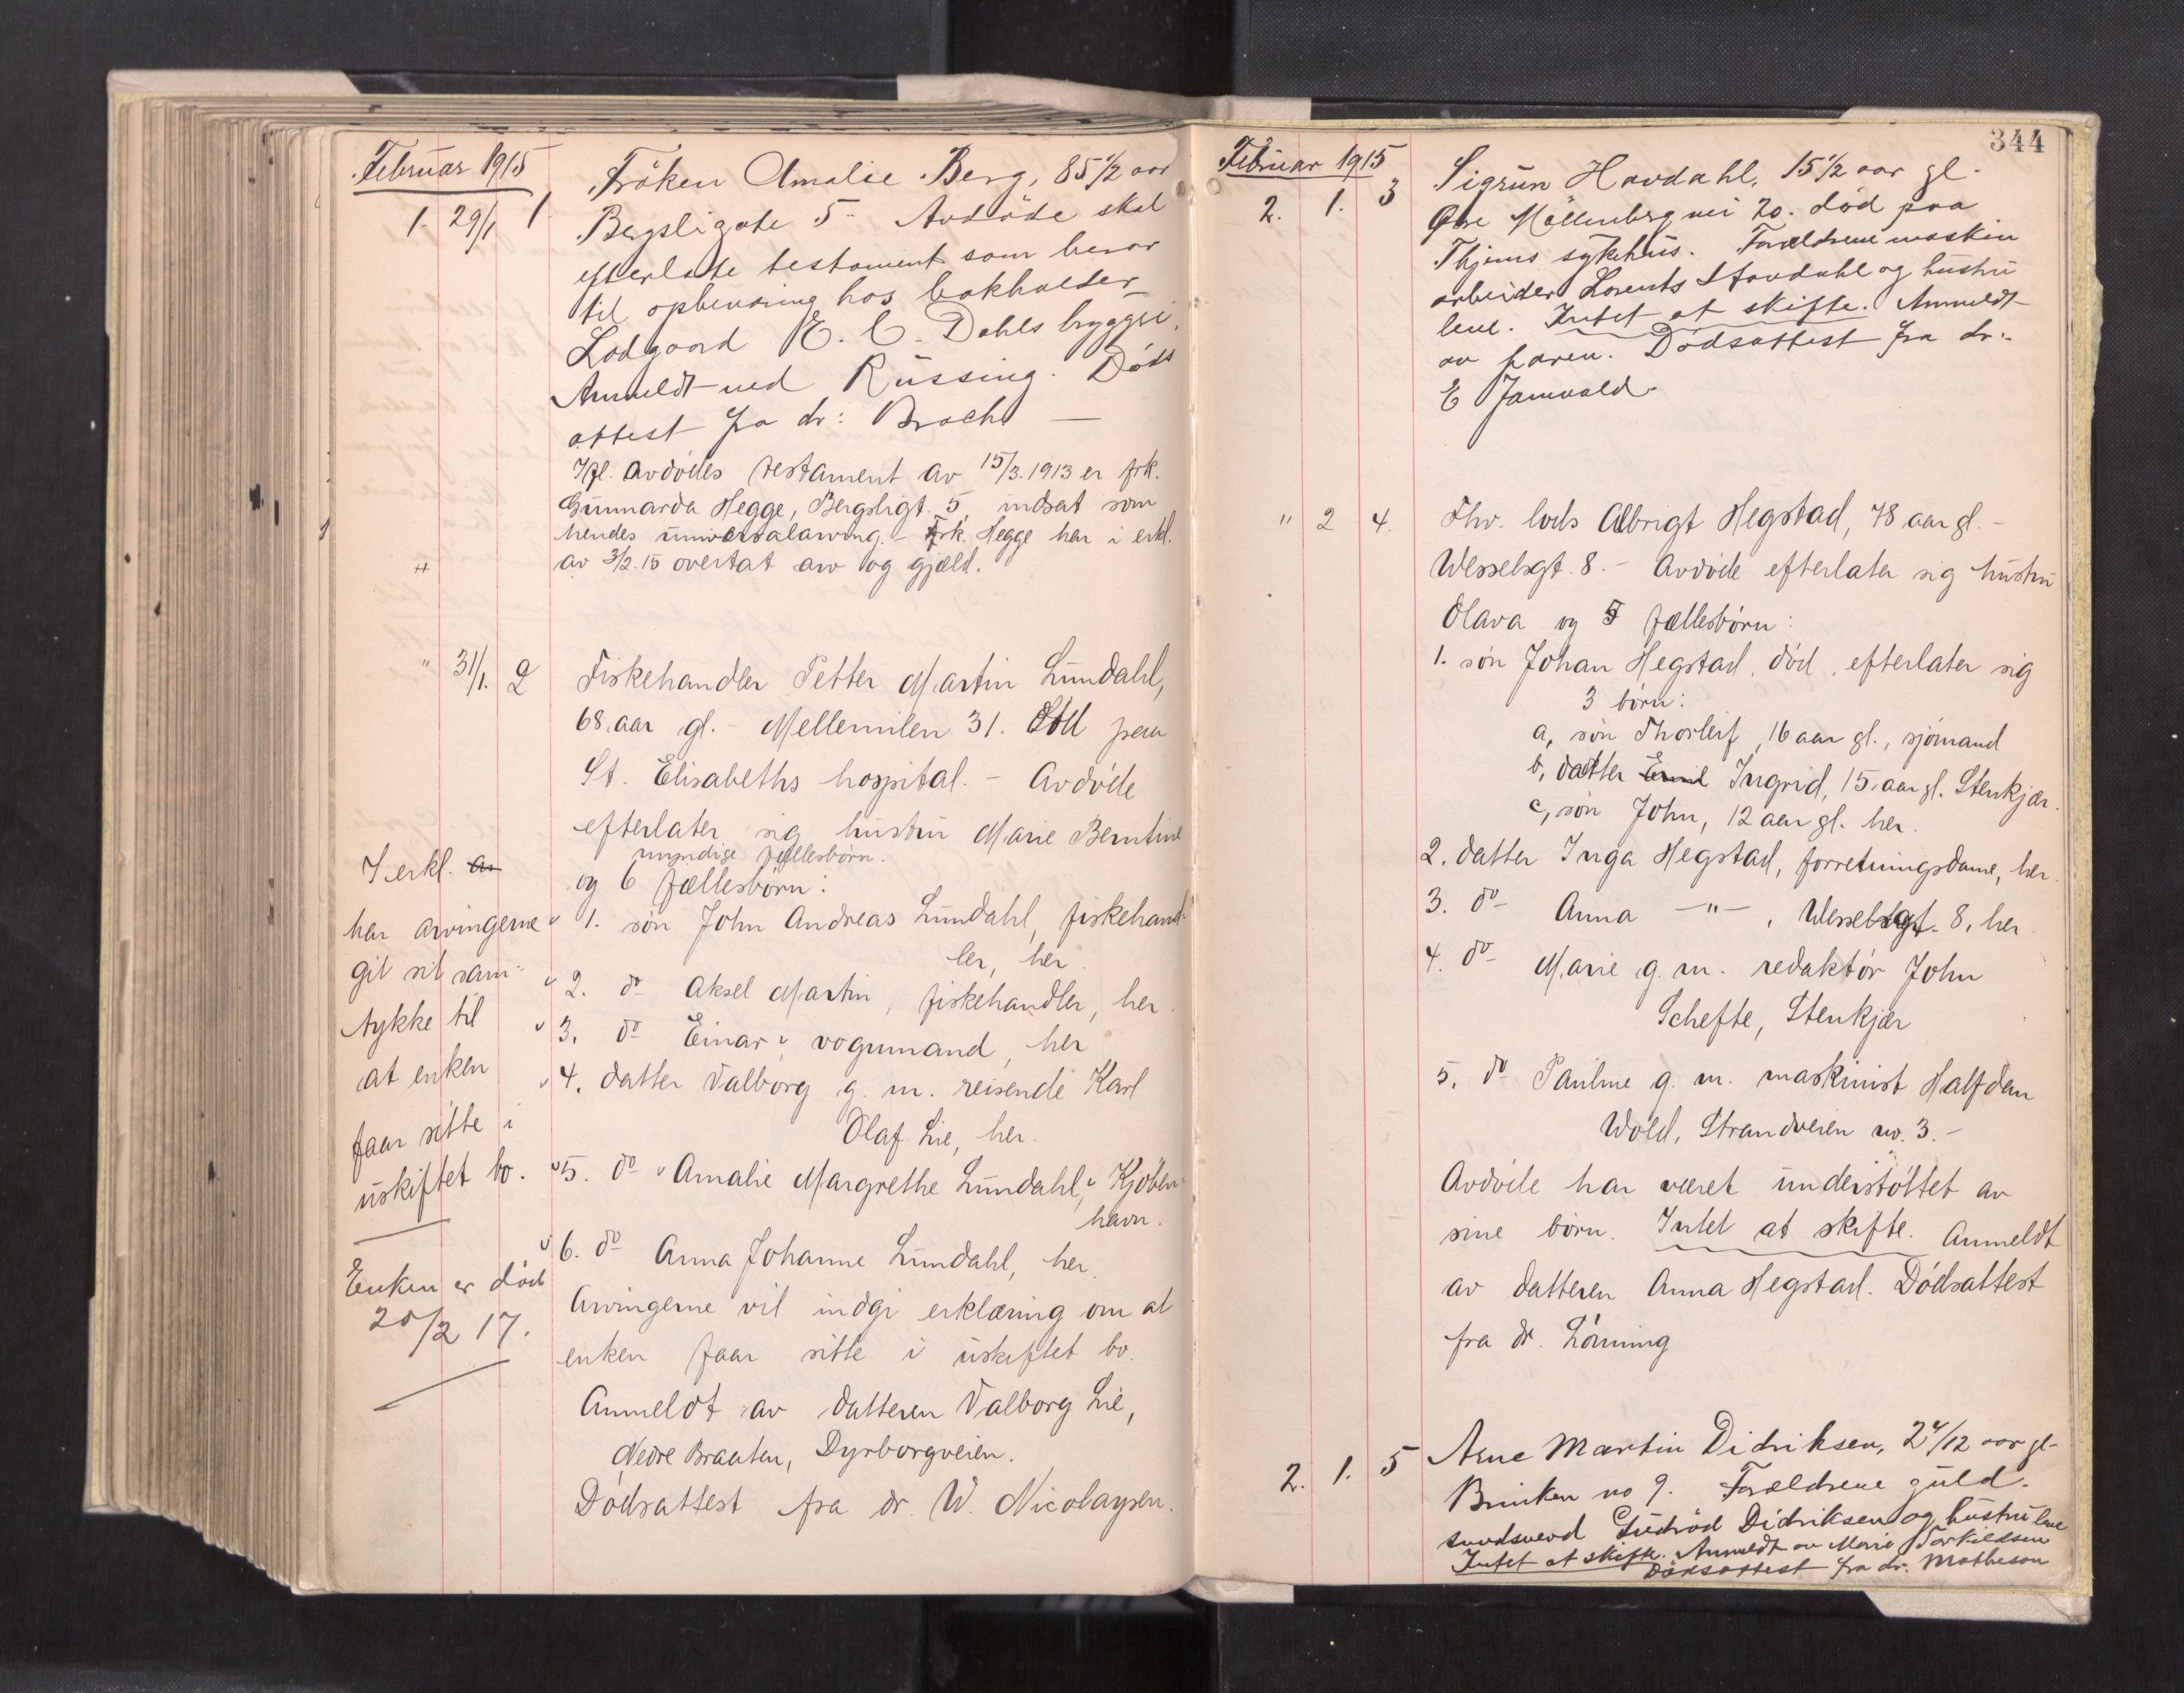 Februar 1915
1. 29/1 1. Frøken Amalie Berg, 85 1/2 aar
Bergsligate 5 - Avdøde skal
efterlate testament som beror
til opbevaring hos bokholder
Lodgaard E. C. Dahls bryggeri,
Anmeldt ved Rüssing. Døds
attest fra dr: Broch —
Ifl. avdødes testament av 15/3.1913 er frk.
Gunnarda Hegge, Bergsligt. 5, indsat som
hendes universalarving. - Frk. Hegge har i erkl.
av 3/2.15 overtat arv og gjæld.
" 31/1. 2 Fiskehandler Petter Martin Lundahl,
68 aar gl. - Mellemilen 31. Død paa
St. Elisabeths hospital. - Avdøde
efterlater sig hustru Marie Berntine
myndige fællesbørn.
og 6 fællesbørn:
1. søn John Andreas Lundahl, fiskehand-
ler, her.
2. do Aksel Martin, fiskehandler, her.
3. do Einar, vognmand, her
4. datter Valborg g. m. reisende Karl
Olaf Lie, her.
5. do Amalie Margrethe Lundahl, Kjøben-
havn.
6. do Anna Johanne Lundahl, her.
Arvingerne vil indgi erklæring om at
enken faar sitte i uskiftet bo.
Anmeldt av datteren Valborg Lie,
Nedre Braaten, Dyrborgveien.
Dødsattest fra dr. W. Nicolaysen.
I erkl. av
har arvingerne
git sit sam-
tykke til
at enken
faar sitte i
uskiftet bo.
Enken er død
20/2 17.
344
Februar 1915
2. 1. 3 Sigrun Hovdahl, 15 1/2 aar gl.
Øvre Møllenberg vei 20. død paa
Thjems sykehus. Forældrene maskin
arbeider Lorents Hovdahl og hustru
leve. Intet at skifte. Anmeldt
av faren. Dødsattest fra dr:
E Jamvold.
" 2 4. Fhv. lods Albrigt Hegstad, 78 aar gl. -
Wesselsgt. 8. - Avdøde efterlater sig hustru
Olava og 5 fællesbørn:
1. søn Johan Hegstad, død, efterlater sig
3 børn:
a, søn Thorleif, 16 aar gl., sjømand
b, datter Emil Ingrid, 15 aar gl. Stenkjær.
c, søn John, 12 aar gl. her.
2. datter Inga Hegstad, forretningsdame, her.
3. do Anna —"—, Wesselsgt. 8, her.
4. do Marie g. m. redaktør John
Schefte, Stenkjær
5. do Pauline g. m. maskinist Halfdan
Wold, Strandveien no. 3. -
Avdøde har været understøttet av
sine børn. Intet at skifte. Anmeldt
av datteren Anna Hegstad. Dødsattest
fra dr. Lønning
2. 1. 5 Arne Martin Didriksen, 2 4/12 aar gl-
Brinken no 9. Forældrene guld.
Didriksen og hustru leve
Intet at skifte. Anmeldt av Marie Torkildsen
Dødsattest fra dr. Matheson